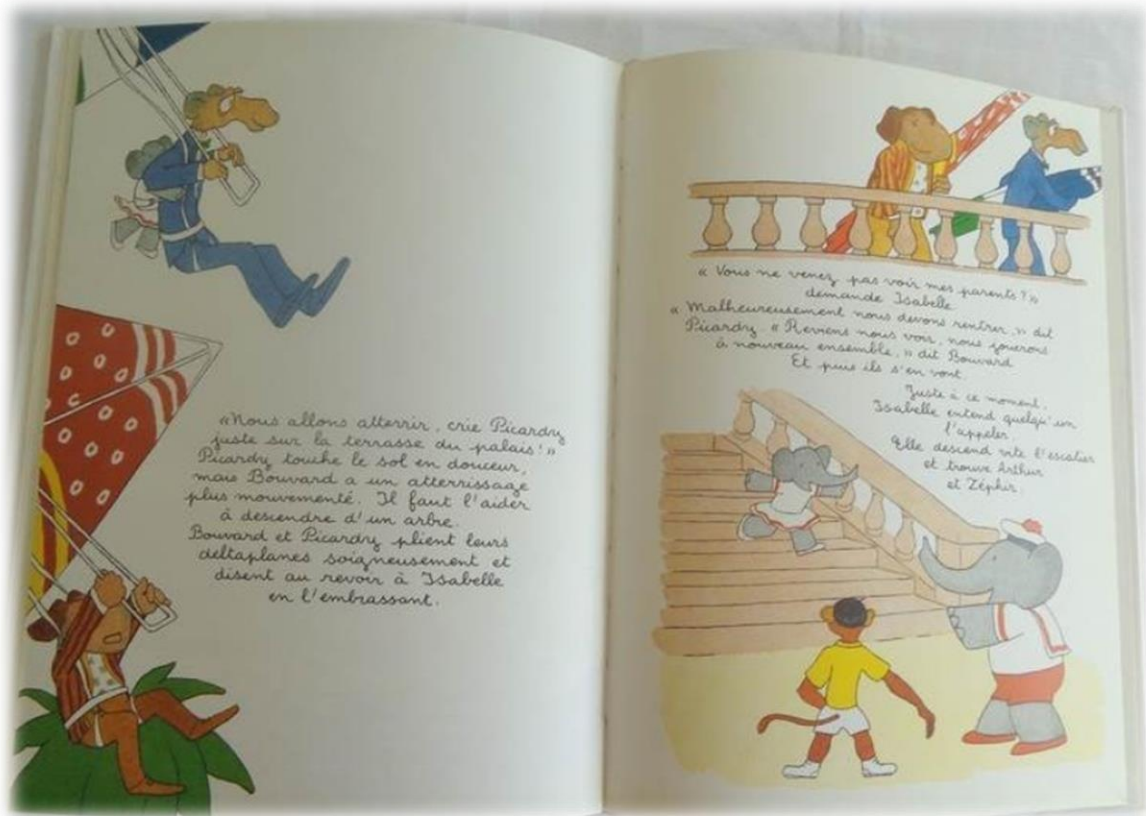 «Nous allons atterrir, crie Picardy
juste sur la terrasse du palais!»
Picardy touche le sol en douceur,
mais Bouvard a un atterrissage
plus mouvementé. Il faut l'aider
à descendre d'un arbre.
Bouvard et Picardy plient leurs
deltaplanes soigneusement et
disent au revoir à Isabelle
en l'embrassant.
« Vous ne venez pas voir mes parents ? »
demande Isabelle
« Malheureusement nous devons rentrer, » dit
Picardy. « Reviens nous voir, nous jouerons
à nouveau ensemble, » dit Bouvard
Et puis ils s'en vont.
Juste à ce moment,
Isabelle entend quelqu'un
l'appeler
Elle descend vite l'escalier
et trouve Arthur
et Zéphir.